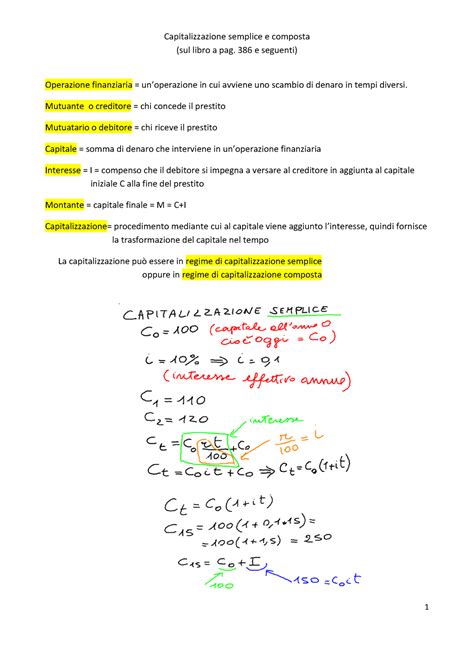 Capitalizzazione semplice e composta
(sul libro a pag. 386 e seguenti)
Operazione finanziaria = un'operazione in cui avviene uno scambio di denaro in tempi diversi.
Mutuante o creditore = chi concede il prestito
Mutuatario o debitore = chi riceve il prestito
Capitale = somma di denaro che interviene in un'operazione finanziaria
Interesse = I = compenso che il debitore si impegna a versare al creditore in aggiunta al capitale
iniziale C alla fine del prestito
Montante = capitale finale = M = C+I
Capitalizzazione= procedimento mediante cui al capitale viene aggiunto l'interesse, quindi fornisce
la trasformazione del capitale nel tempo
La capitalizzazione può essere in regime di capitalizzazione semplice
oppure in regime di capitalizzazione composta
CAPITALIZZAZIONE SEMPLICE
C₀ = 100 (capitale all'anno 0
cioè oggi = C₀)
i = 10% ⇒ i = 0,1
(interesse effettivo annuo)
C₁ = 110
C₂ = 120
interesse
Cₜ = C₀ rt/100 + C₀
r/100 = i
Cₜ = C₀it + C₀ ⇒ Cₜ = C₀(1+it)
Cₜ = C₀(1+it)
C₁₅ = 100(1+0,1·15) =
= 100(1+1,5) = 250
C₁₅ = C₀ + I
100
150 = C₀it
1